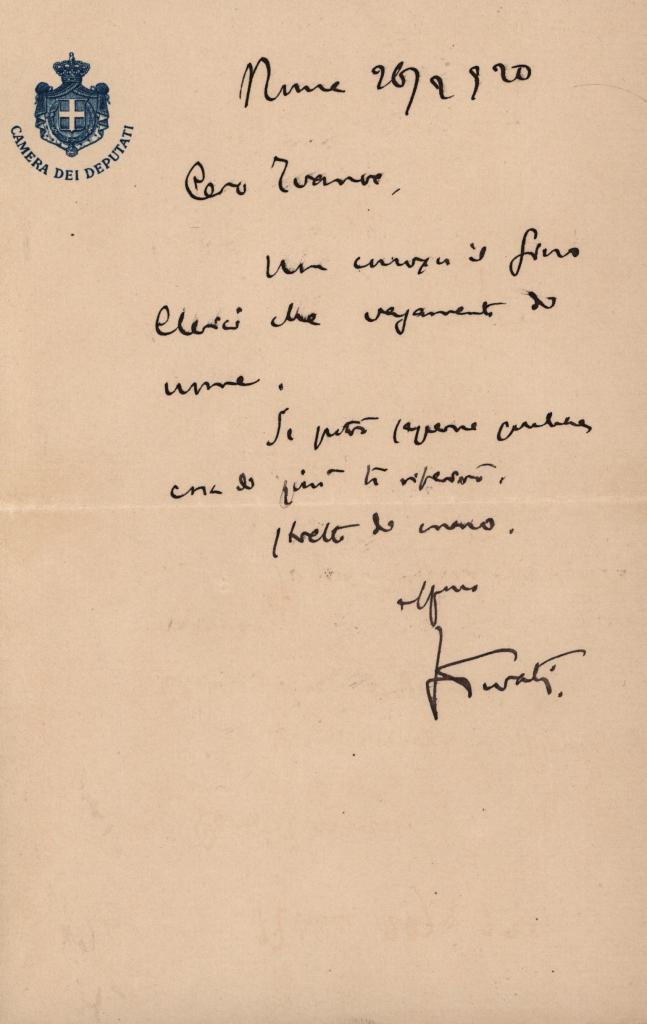 CAMERA DEI DEPUTATI
Roma 26/2 920
Caro Ivanoe,
il Gino
Clerici che vagamente di
nome.
Se potrò saperne qualche
cosa di più ti riferirò.
Stretta di mano.
aff.mo
F Turati.